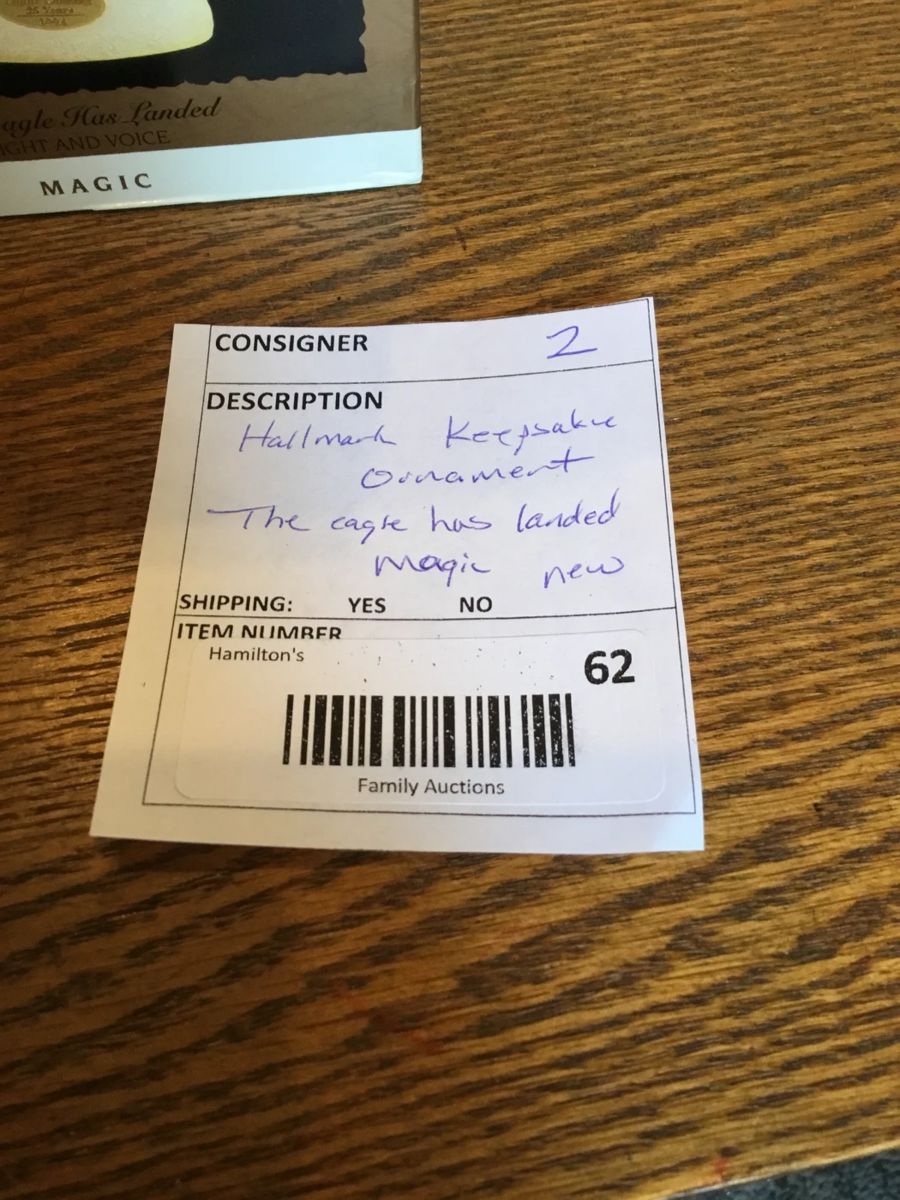 25 Years
1994
agle Has Landed
IGHT AND VOICE
MAGIC
CONSIGNER 2
DESCRIPTION
Hallmark Keepsake
Ornament
The eagle has landed
Magic new
SHIPPING: YES NO
ITEM NUMBER
Hamilton's
62
Family Auctions